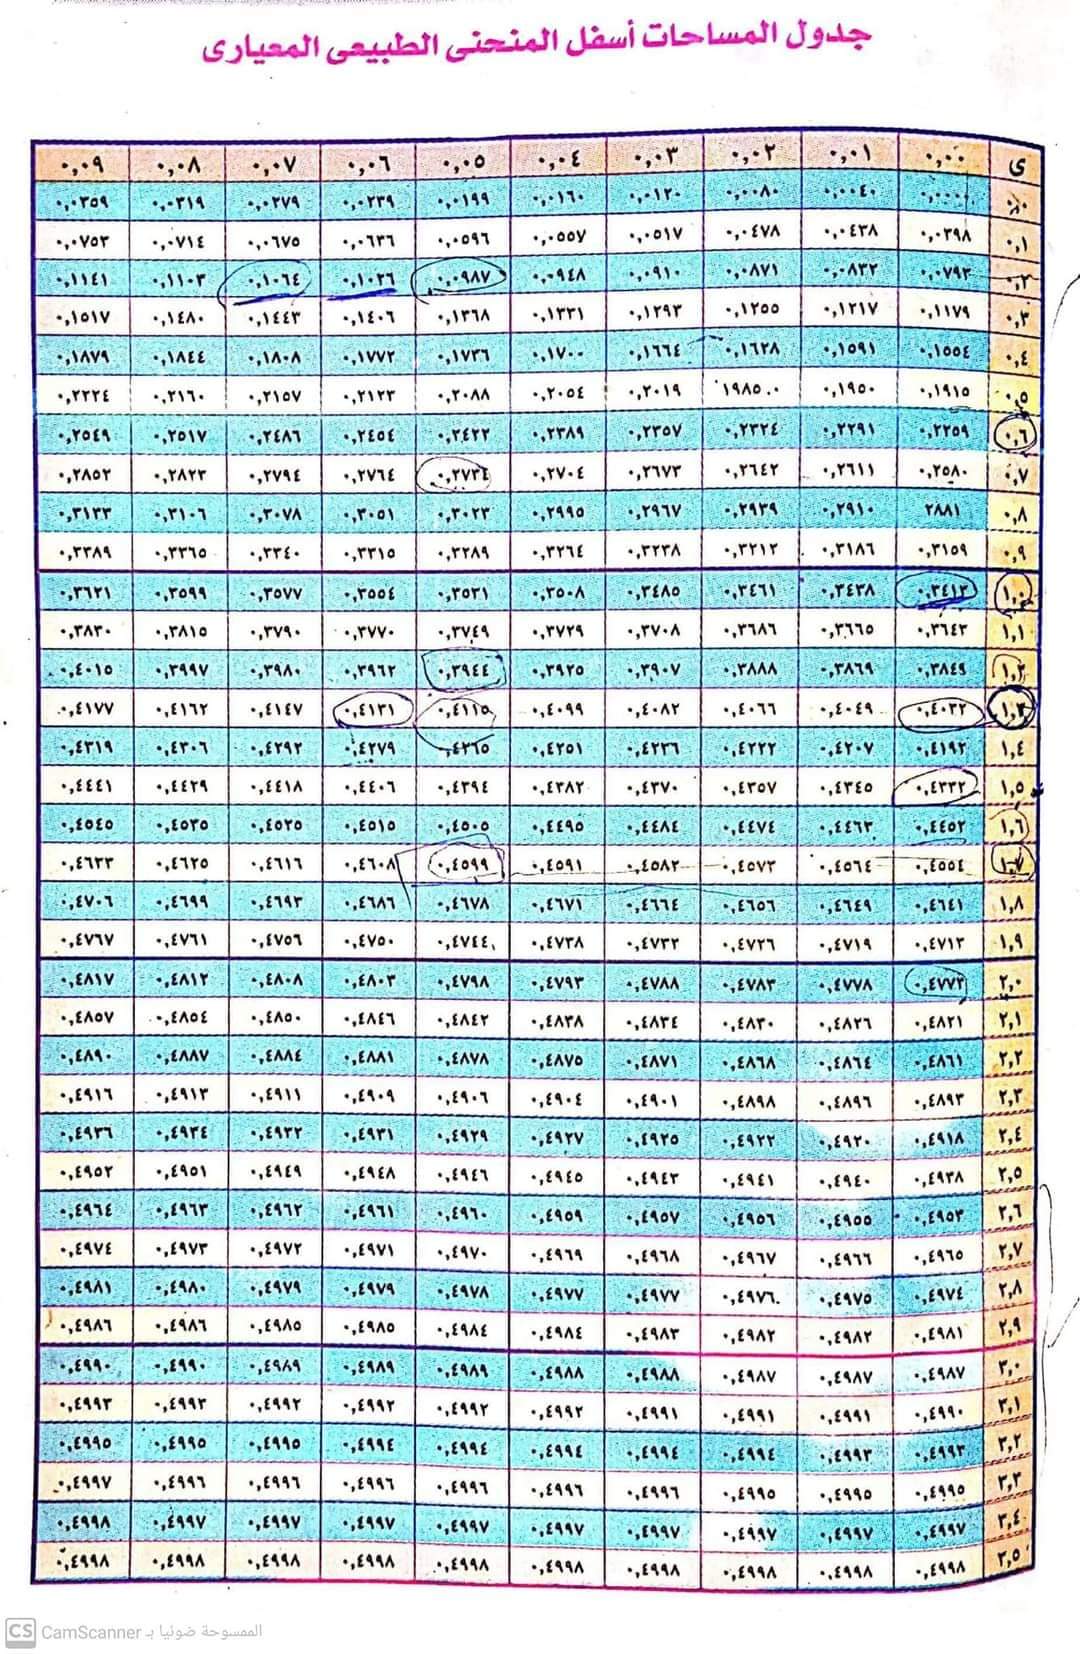 جدول المساحات أسفل المنحنى الطبيعى المعيارى
ى ٠,٠٠ ٠,٠١ ٠,٠٢ ٠,٠٣ ٠,٠٤ ٠,٠٥ ٠,٠٦ ٠,٠٧ ٠,٠٨ ٠,٠٩
٠,٠ ٠,٠٠٠٠ ٠,٠٠٤٠ ٠,٠٠٨٠ ٠,٠١٢٠ ٠,٠١٦٠ ٠,٠١٩٩ ٠,٠٢٣٩ ٠,٠٢٧٩ ٠,٠٣١٩ ٠,٠٣٥٩
٠,١ ٠,٠٣٩٨ ٠,٠٤٣٨ ٠,٠٤٧٨ ٠,٠٥١٧ ٠,٠٥٥٧ ٠,٠٥٩٦ ٠,٠٦٣٦ ٠,٠٦٧٥ ٠,٠٧١٤ ٠,٠٧٥٣
٠,٢ ٠,٠٧٩٣ ٠,٠٨٣٢ ٠,٠٨٧١ ٠,٠٩١٠ ٠,٠٩٤٨ ٠,٠٩٨٧ ٠,١٠٢٦ ٠,١٠٦٤ ٠,١١٠٣ ٠,١١٤١
٠,٣ ٠,١١٧٩ ٠,١٢١٧ ٠,١٢٥٥ ٠,١٢٩٣ ٠,١٣٣١ ٠,١٣٦٨ ٠,١٤٠٦ ٠,١٤٤٣ ٠,١٤٨٠ ٠,١٥١٧
٠,٤ ٠,١٥٥٤ ٠,١٥٩١ ٠,١٦٢٨ ٠,١٦٦٤ ٠,١٧٠٠ ٠,١٧٣٦ ٠,١٧٧٢ ٠,١٨٠٨ ٠,١٨٤٤ ٠,١٨٧٩
٠,٥ ٠,١٩١٥ ٠,١٩٥٠ 1985.. ٠,٢٠١٩ ٠,٢٠٥٤ ٠,٢٠٨٨ ٠,٢١٢٣ ٠,٢١٥٧ ٠,٢١٦٠ ٠,٢٢٢٤
٠,٦ ٠,٢٢٥٩ ٠,٢٢٩١ ٠,٢٣٢٤ ٠,٢٣٥٧ ٠,٢٣٨٩ ٠,٢٤٢٢ ٠,٢٤٥٤ ٠,٢٤٨٦ ٠,٢٥١٧ ٠,٢٥٤٩
٠,٧ ٠,٢٥٨٠ ٠,٢٦١١ ٠,٢٦٤٢ ٠,٢٦٧٣ ٠,٢٧٠٤ ٠,٢٧٣٤ ٠,٢٧٦٤ ٠,٢٧٩٤ ٠,٢٨٢٣ ٠,٢٨٥٢
٠,٨ ٢٨٨١ ٠,٢٩١٠ ٠,٢٩٣٩ ٠,٢٩٦٧ ٠,٢٩٩٥ ٠,٣٠٢٣ ٠,٣٠٥١ ٠,٣٠٧٨ ٠,٣١٠٦ ٠,٣١٣٣
٠,٩ ٠,٣١٥٩ ٠,٣١٨٦ ٠,٣٢١٢ ٠,٣٢٣٨ ٠,٣٢٦٤ ٠,٣٢٨٩ ٠,٣٣١٥ ٠,٣٣٤٠ ٠,٣٣٦٥ ٠,٣٣٨٩
١,٠ ٠,٣٤١٣ ٠,٣٤٣٨ ٠,٣٤٦١ ٠,٣٤٨٥ ٠,٣٥٠٨ ٠,٣٥٣١ ٠,٣٥٥٤ ٠,٣٥٧٧ ٠,٣٥٩٩ ٠,٣٦٢١
١,١ ٠,٣٦٤٣ ٠,٣٦٦٥ ٠,٣٦٨٦ ٠,٣٧٠٨ ٠,٣٧٢٩ ٠,٣٧٤٩ ٠,٣٧٧٠ ٠,٣٧٩٠ ٠,٣٨١٥ ٠,٣٨٣٠
١,٢ ٠,٣٨٤٩ ٠,٣٨٦٩ ٠,٣٨٨٨ ٠,٣٩٠٧ ٠,٣٩٢٥ ٠,٣٩٤٤ ٠,٣٩٦٢ ٠,٣٩٨٠ ٠,٣٩٩٧ ٠,٤٠١٥
١,٣ ٠,٤٠٣٢ ٠,٤٠٤٩ ٠,٤٠٦٦ ٠,٤٠٨٢ ٠,٤٠٩٩ ٠,٤١١٥ ٠,٤١٣١ ٠,٤١٤٧ ٠,٤١٦٢ ٠,٤١٧٧
١,٤ ٠,٤١٩٢ ٠,٤٢٠٧ ٠,٤٢٢٢ ٠,٤٢٣٦ ٠,٤٢٥١ ٠,٤٢٦٥ ٠,٤٢٧٩ ٠,٤٢٩٢ ٠,٤٣٠٦ ٠,٤٣١٩
١,٥ ٠,٤٣٣٢ ٠,٤٣٤٥ ٠,٤٣٥٧ ٠,٤٣٧٠ ٠,٤٣٨٢ ٠,٤٣٩٤ ٠,٤٤٠٦ ٠,٤٤١٨ ٠,٤٤٢٩ ٠,٤٤٤١
١,٦ ٠,٤٤٥٢ ٠,٤٤٦٣ ٠,٤٤٧٤ ٠,٤٤٨٤ ٠,٤٤٩٥ ٠,٤٥٠٥ ٠,٤٥١٥ ٠,٤٥٢٥ ٠,٤٥٣٥ ٠,٤٥٤٥
١,٧ ٠,٤٥٥٤ ٠,٤٥٦٤ ٠,٤٥٧٣ ٠,٤٥٨٢ ٠,٤٥٩١ ٠,٤٥٩٩ ٠,٤٦٠٨ ٠,٤٦١٦ ٠,٤٦٢٥ ٠,٤٦٣٣
١,٨ ٠,٤٦٤١ ٠,٤٦٤٩ ٠,٤٦٥٦ ٠,٤٦٦٤ ٠,٤٦٧١ ٠,٤٦٧٨ ٠,٤٦٨٦ ٠,٤٦٩٣ ٠,٤٦٩٩ ٠,٤٧٠٦
١,٩ ٠,٤٧١٣ ٠,٤٧١٩ ٠,٤٧٢٦ ٠,٤٧٣٢ ٠,٤٧٣٨ ٠,٤٧٤٤ ٠,٤٧٥٠ ٠,٤٧٥٦ ٠,٤٧٦١ ٠,٤٧٦٧
٢,٠ ٠,٤٧٧٢ ٠,٤٧٧٨ ٠,٤٧٨٣ ٠,٤٧٨٨ ٠,٤٧٩٣ ٠,٤٧٩٨ ٠,٤٨٠٣ ٠,٤٨٠٨ ٠,٤٨١٢ ٠,٤٨١٧
٢,١ ٠,٤٨٢١ ٠,٤٨٢٦ ٠,٤٨٣٠ ٠,٤٨٣٤ ٠,٤٨٣٨ ٠,٤٨٤٢ ٠,٤٨٤٦ ٠,٤٨٥٠ ٠,٤٨٥٤ ٠,٤٨٥٧
٢,٢ ٠,٤٨٦١ ٠,٤٨٦٤ ٠,٤٨٦٨ ٠,٤٨٧١ ٠,٤٨٧٥ ٠,٤٨٧٨ ٠,٤٨٨١ ٠,٤٨٨٤ ٠,٤٨٨٧ ٠,٤٨٩٠
٢,٣ ٠,٤٨٩٣ ٠,٤٨٩٦ ٠,٤٨٩٨ ٠,٤٩٠١ ٠,٤٩٠٤ ٠,٤٩٠٦ ٠,٤٩٠٩ ٠,٤٩١١ ٠,٤٩١٣ ٠,٤٩١٦
٢,٤ ٠,٤٩١٨ ٠,٤٩٢٠ ٠,٤٩٢٢ ٠,٤٩٢٥ ٠,٤٩٢٧ ٠,٤٩٢٩ ٠,٤٩٣١ ٠,٤٩٣٢ ٠,٤٩٣٤ ٠,٤٩٣٦
٢,٥ ٠,٤٩٣٨ ٠,٤٩٤٠ ٠,٤٩٤١ ٠,٤٩٤٣ ٠,٤٩٤٥ ٠,٤٩٤٦ ٠,٤٩٤٨ ٠,٤٩٤٩ ٠,٤٩٥١ ٠,٤٩٥٢
٢,٦ ٠,٤٩٥٣ ٠,٤٩٥٥ ٠,٤٩٥٦ ٠,٤٩٥٧ ٠,٤٩٥٩ ٠,٤٩٦٠ ٠,٤٩٦١ ٠,٤٩٦٢ ٠,٤٩٦٣ ٠,٤٩٦٤
٢,٧ ٠,٤٩٦٥ ٠,٤٩٦٦ ٠,٤٩٦٧ ٠,٤٩٦٨ ٠,٤٩٦٩ ٠,٤٩٧٠ ٠,٤٩٧١ ٠,٤٩٧٢ ٠,٤٩٧٣ ٠,٤٩٧٤
٢,٨ ٠,٤٩٧٤ ٠,٤٩٧٥ ٠,٤٩٧٦ ٠,٤٩٧٧ ٠,٤٩٧٧ ٠,٤٩٧٨ ٠,٤٩٧٩ ٠,٤٩٧٩ ٠,٤٩٨٠ ٠,٤٩٨١
٢,٩ ٠,٤٩٨١ ٠,٤٩٨٢ ٠,٤٩٨٢ ٠,٤٩٨٣ ٠,٤٩٨٤ ٠,٤٩٨٤ ٠,٤٩٨٥ ٠,٤٩٨٥ ٠,٤٩٨٦ ٠,٤٩٨٦
٣,٠ ٠,٤٩٨٧ ٠,٤٩٨٧ ٠,٤٩٨٧ ٠,٤٩٨٨ ٠,٤٩٨٨ ٠,٤٩٨٩ ٠,٤٩٨٩ ٠,٤٩٨٩ ٠,٤٩٩٠ ٠,٤٩٩٠
٣,١ ٠,٤٩٩٠ ٠,٤٩٩١ ٠,٤٩٩١ ٠,٤٩٩١ ٠,٤٩٩٢ ٠,٤٩٩٢ ٠,٤٩٩٢ ٠,٤٩٩٢ ٠,٤٩٩٣ ٠,٤٩٩٣
٣,٢ ٠,٤٩٩٣ ٠,٤٩٩٣ ٠,٤٩٩٤ ٠,٤٩٩٤ ٠,٤٩٩٤ ٠,٤٩٩٤ ٠,٤٩٩٤ ٠,٤٩٩٥ ٠,٤٩٩٥ ٠,٤٩٩٥
٣,٣ ٠,٤٩٩٥ ٠,٤٩٩٥ ٠,٤٩٩٥ ٠,٤٩٩٦ ٠,٤٩٩٦ ٠,٤٩٩٦ ٠,٤٩٩٦ ٠,٤٩٩٦ ٠,٤٩٩٦ ٠,٤٩٩٧
٣,٤ ٠,٤٩٩٧ ٠,٤٩٩٧ ٠,٤٩٩٧ ٠,٤٩٩٧ ٠,٤٩٩٧ ٠,٤٩٩٧ ٠,٤٩٩٧ ٠,٤٩٩٧ ٠,٤٩٩٧ ٠,٤٩٩٨
٣,٥ ٠,٤٩٩٨ ٠,٤٩٩٨ ٠,٤٩٩٨ ٠,٤٩٩٨ ٠,٤٩٩٨ ٠,٤٩٩٨ ٠,٤٩٩٨ ٠,٤٩٩٨ ٠,٤٩٩٨ ٠,٤٩٩٨
الممسوحة ضوئيا بـ CamScanner
CS